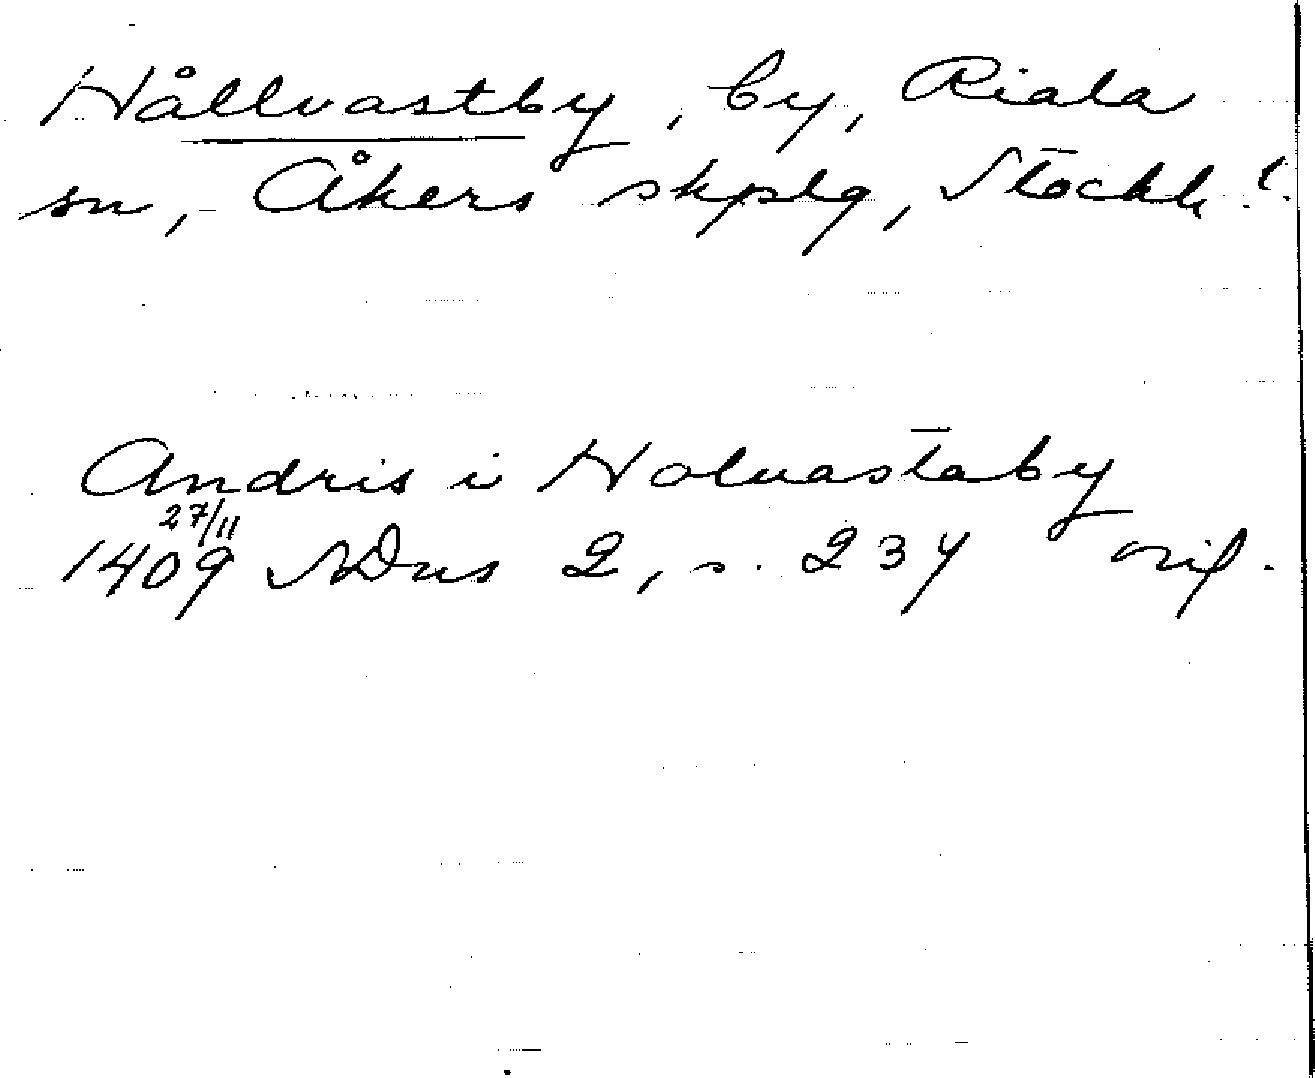 Hållvastby, by, Riala
sn, Åkers skplg, Stockh. l.
Andris i Holuastaby
27/11
1409 SDns 2, s. 234 orig.